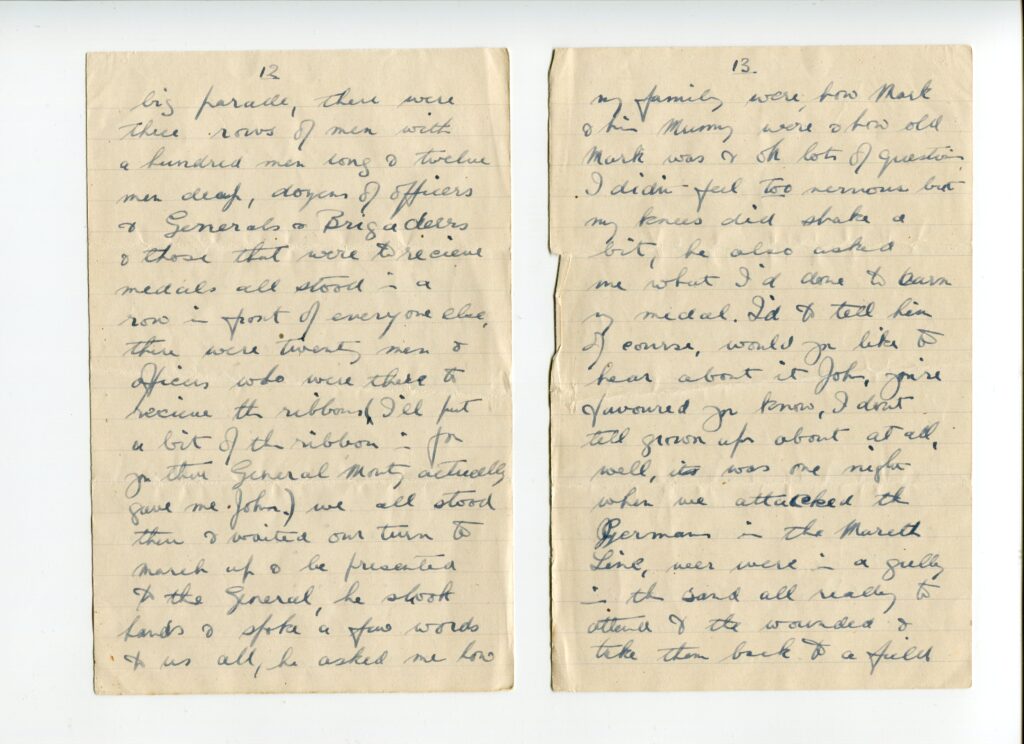 12
big parade, there were
three rows of men with
a hundred men long & twelve
men deep, dozens of officers
& Generals & Brigadeers
& those that were to recieve
medals all stood in a
row in front of everyone else,
there were twenty men &
officers who were there to
recieve the ribbons (I'll put
a bit of the ribbon in for
you that General Monty actually
gave me John.) we all stood
then & waited our turn to
march up & be presented
to the General, he shook
hands & spoke a few words
to us all, he asked me how
13.
my family were, how Mark
& his Mummy were & how old
Mark was & oh lots of questions
I didn't feel too nervous but
my knees did shake a
bit, he also asked
me what I'd done to earn
my medal. I'd to tell him
of course, would you like to
hear about it John, you're
favoured you know, I dont
tell grown ups about at all,
well, its was one night
when we attacked the
Germans in the Mareth
Line, were in a gulley
in the sand all ready to
attend to the wounded &
take them back to a field